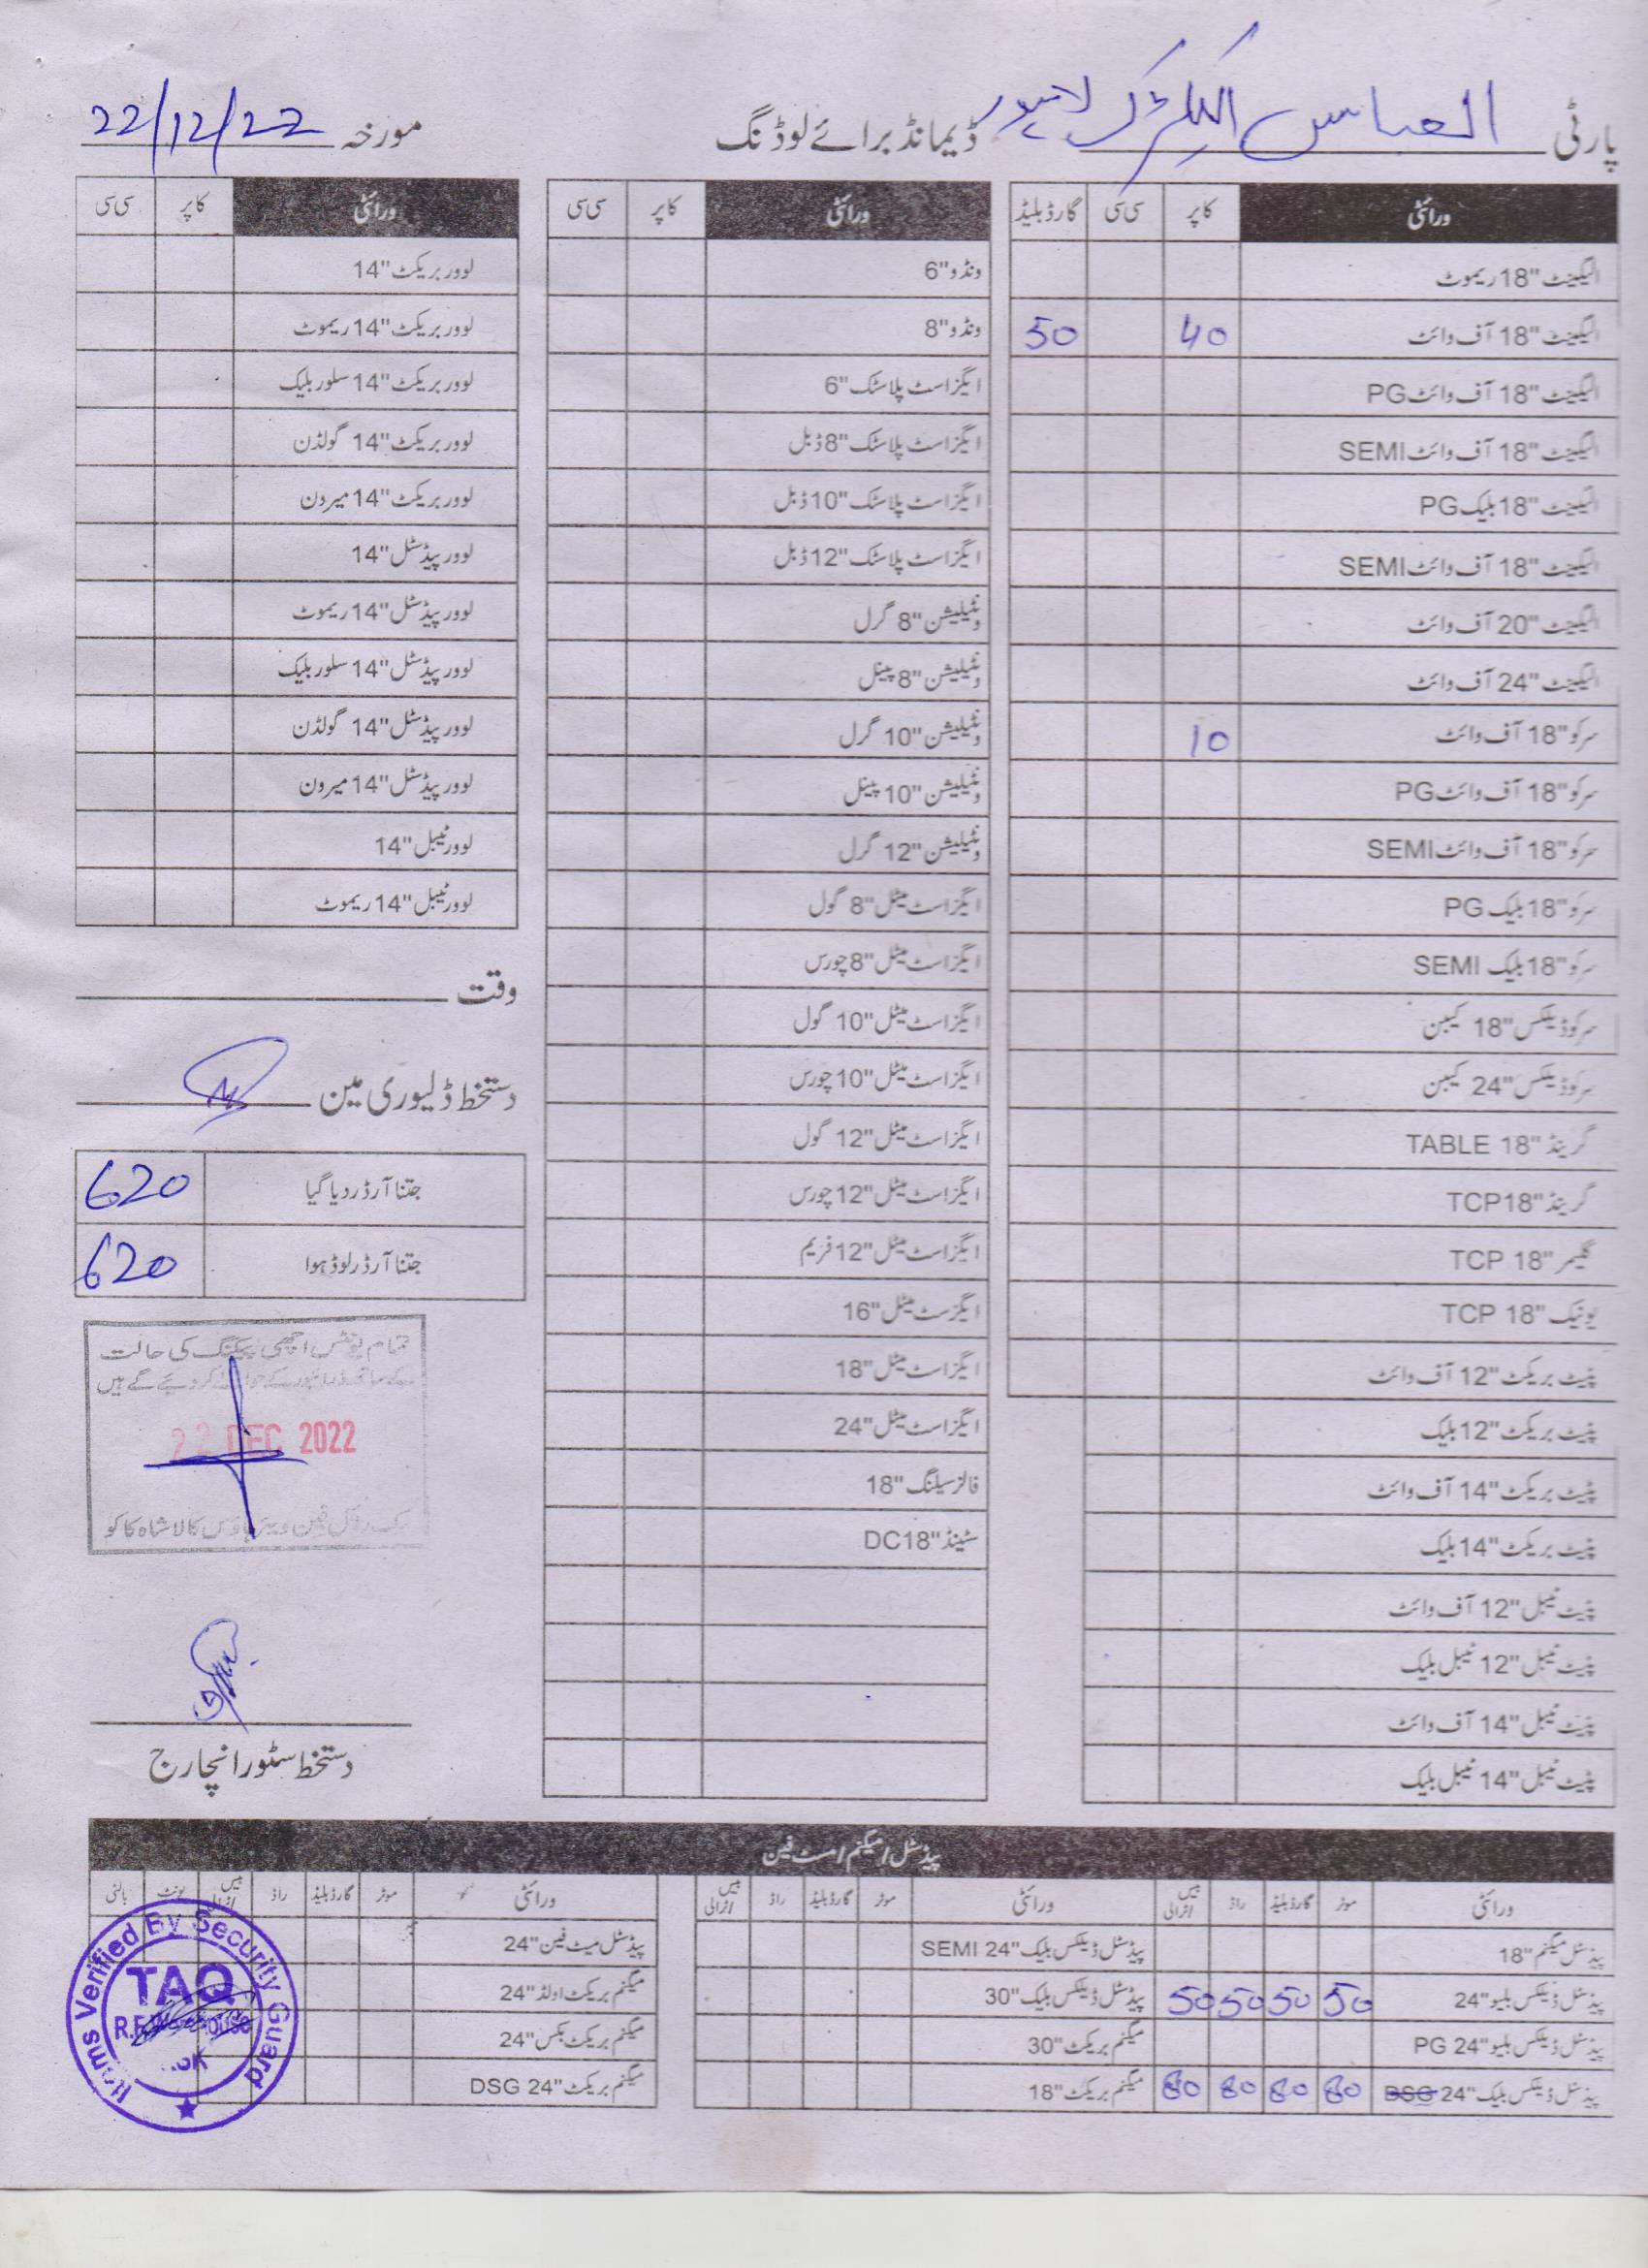 پارٹی العباس الیکٹرک لاہور
ڈیمانڈ برائے لوڈنگ
مورخہ 22/12/22
ورائٹی کاپر سی سی گارڈ بلیڈ
الیگینٹ "18 ریموٹ
الیگینٹ "18 آف وائٹ 40 50
الیگینٹ "18 آف وائٹ PG
الیگینٹ "18 آف وائٹ SEMI
الیگینٹ "18 بلیک PG
الیگینٹ "18 آف وائٹ SEMI
الیگینٹ "20 آف وائٹ
الیگینٹ "24 آف وائٹ
سرکو "18 آف وائٹ 10
سرکو "18 آف وائٹ PG
سرکو "18 آف وائٹ SEMI
سرکو "18 بلیک PG
سرکو "18 بلیک SEMI
سرکو ڈیلکس "18 کیبن
سرکو ڈیلکس "24 کیبن
گرینڈ "18 TABLE
گرینڈ "18 TCP
گلیمر "18 TCP
یونیک "18 TCP
پنیٹ بریکٹ "12 آف وائٹ
پنیٹ بریکٹ "12 بلیک
پنیٹ بریکٹ "14 آف وائٹ
پنیٹ بریکٹ "14 بلیک
پنیٹ ٹیبل "12 آف وائٹ
پنیٹ ٹیبل "12 ٹیبل بلیک
پنیٹ ٹیبل "14 آف وائٹ
پنیٹ ٹیبل "14 ٹیبل بلیک
ورائٹی کاپر سی سی
ونڈو "6
ونڈو "8
ایگزاسٹ پلاسٹک "6
ایگزاسٹ پلاسٹک "8 ڈبل
ایگزاسٹ پلاسٹک "10 ڈبل
ایگزاسٹ پلاسٹک "12 ڈبل
ونٹیلیشن "8 گرل
ونٹیلیشن "8 پینل
ونٹیلیشن "10 گرل
ونٹیلیشن "10 پینل
ونٹیلیشن "12 گرل
ایگزاسٹ میٹل "8 گول
ایگزاسٹ میٹل "8 چورس
ایگزاسٹ میٹل "10 گول
ایگزاسٹ میٹل "10 چورس
ایگزاسٹ میٹل "12 گول
ایگزاسٹ میٹل "12 چورس
ایگزاسٹ میٹل "12 فریم
ایگزسٹ میٹل "16
ایگزاسٹ میٹل "18
ایگزاسٹ میٹل "24
فالز سیلنگ "18
سٹینڈ "18 DC
ورائٹی کاپر سی سی
لوور بریکٹ "14
لوور بریکٹ "14 ریموٹ
لوور بریکٹ "14 سلور بلیک
لوور بریکٹ "14 گولڈن
لوور بریکٹ "14 میرون
لوور پیڈسٹل "14
لوور پیڈسٹل "14 ریموٹ
لوور پیڈسٹل "14 سلور بلیک
لوور پیڈسٹل "14 گولڈن
لوور پیڈسٹل "14 میرون
لوور ٹیبل "14
لوور ٹیبل "14 ریموٹ
وقت
دستخط ڈلیوری مین
جتنا آرڈر دیا گیا 620
جتنا آرڈر لوڈ ہوا 620
تمام یونٹس اچھی پیکنگ کی حالت
کے ساتھ ڈرائیور کے حوالے کر دیئے گے ہیں
22 DEC 2022
رائل فین ویئر ہاؤس کالا شاہ کاکو
دستخط سٹور انچارج
پیڈسٹل / میگنم / مسٹ فین
ورائٹی موٹر گارڈ بلیڈ راڈ بیس / ٹرالی
پیڈسٹل میگنم "18
پیڈسٹل ڈیلکس بلیو "24 50 50 50 50
پیڈسٹل ڈیلکس بلیو "24 PG
پیڈسٹل ڈیلکس بلیک "24 DSG 80 80 80 80
ورائٹی موٹر گارڈ بلیڈ راڈ بیس / ٹرالی
پیڈسٹل ڈیلکس بلیک "24 SEMI
پیڈسٹل ڈیلکس بلیک "30
میگنم بریکٹ "30
میگنم بریکٹ "18
ورائٹی موٹر گارڈ بلیڈ راڈ بیس / ٹرالی یونٹ بالٹی
پیڈسٹل میٹ فین "24
میگنم بریکٹ اولڈ "24
میگنم بریکٹ بکس "24
میگنم بریکٹ "24 DSG
Items Verified By Security Guard
TAQ